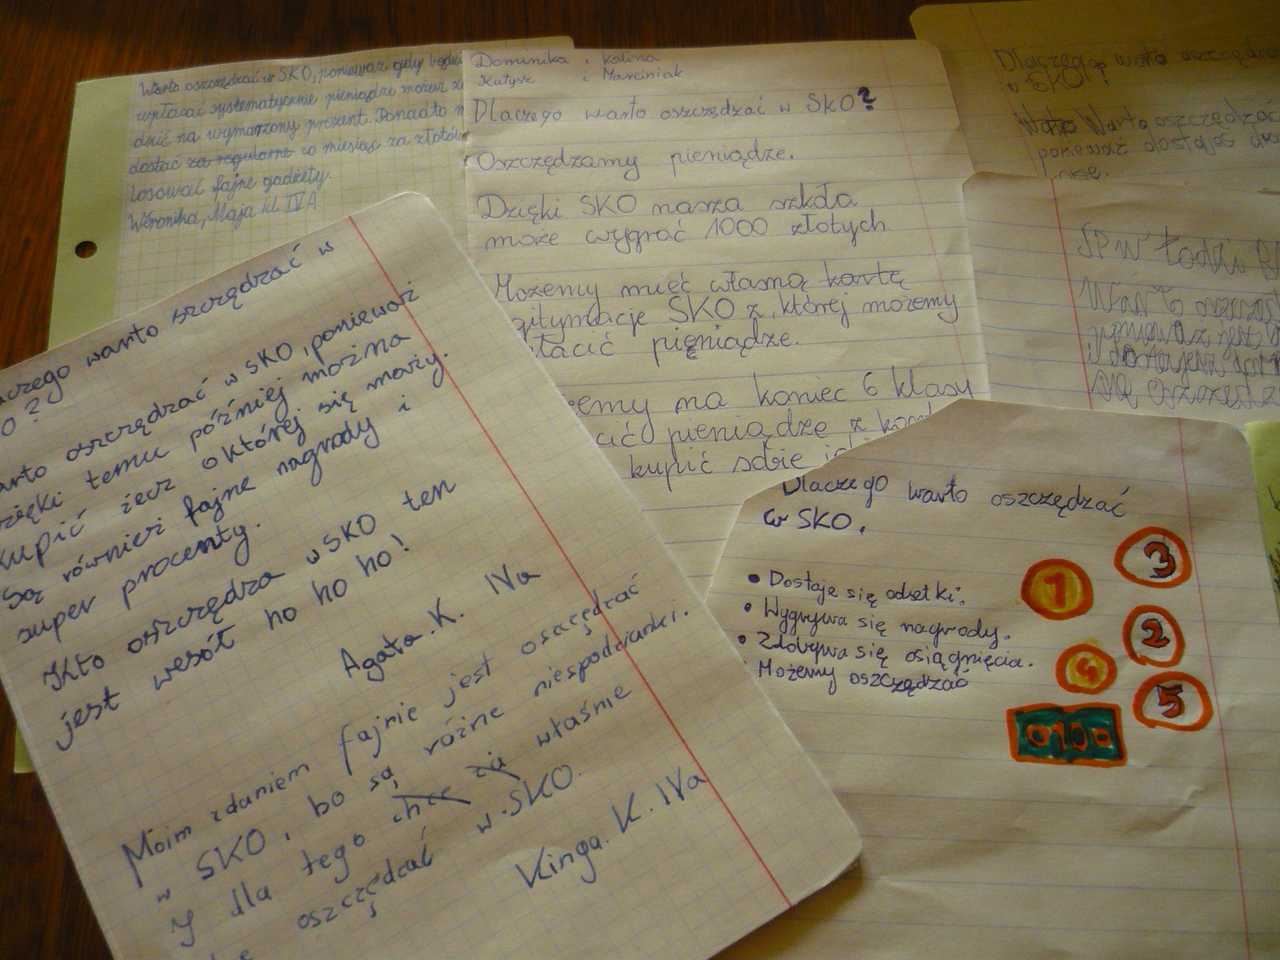 Warto oszczędzać w SKO, ponieważ gdy będzie
wpłacać systematycznie pieniądze możesz
dzić na wymarzony prezent. Ponadto
dostać za regularne co miesiąc za złotów
losować fajne gadżety.
Weronika, Maja kl IV A
Dominika i Kalina
i Marciniak
Dlaczego warto oszczędzać w SKO?
Oszczędzamy pieniądze.
Dzięki SKO nasza szkoła
może wygrać 1000 złotych
Możemy mieć własną kartę
gitymacje SKO z, której możemy
łacić pięniądze.
emy na koniec 6 klasy
cić pieniądze z
kupić sobie
Dlaczego warto oszczędza
w SKO?
Warto oszczędzać
ponieważ dostajesz
SP W Łodzi
Warto oszczę
ponieważ jest
się oszczędza
aczego warto oszczędzać w
O?
arto oszczędzać w SKO, ponieważ
zięki temu później można
kupić rzecz o której się marzy.
Są również fajne nagrody i
super procenty.
Kto oszczędza w SKO ten
jest wesół ho ho ho!
Agata. K. IVa
Moim zdaniem fajnie jest oszczędzać
w SKO, bo są różne niespodzianki.
I dla tego chce za właśnie
oszczędzać w SKO.
Kinga. K. IVa
Dlaczego warto oszczędzać
w SKO.
• Dostaje się odsetki.
• Wygrywa się nagrody.
• Zdobywa się osiągnięcia.
Możemy oszczędzać
3
1
2
5
100